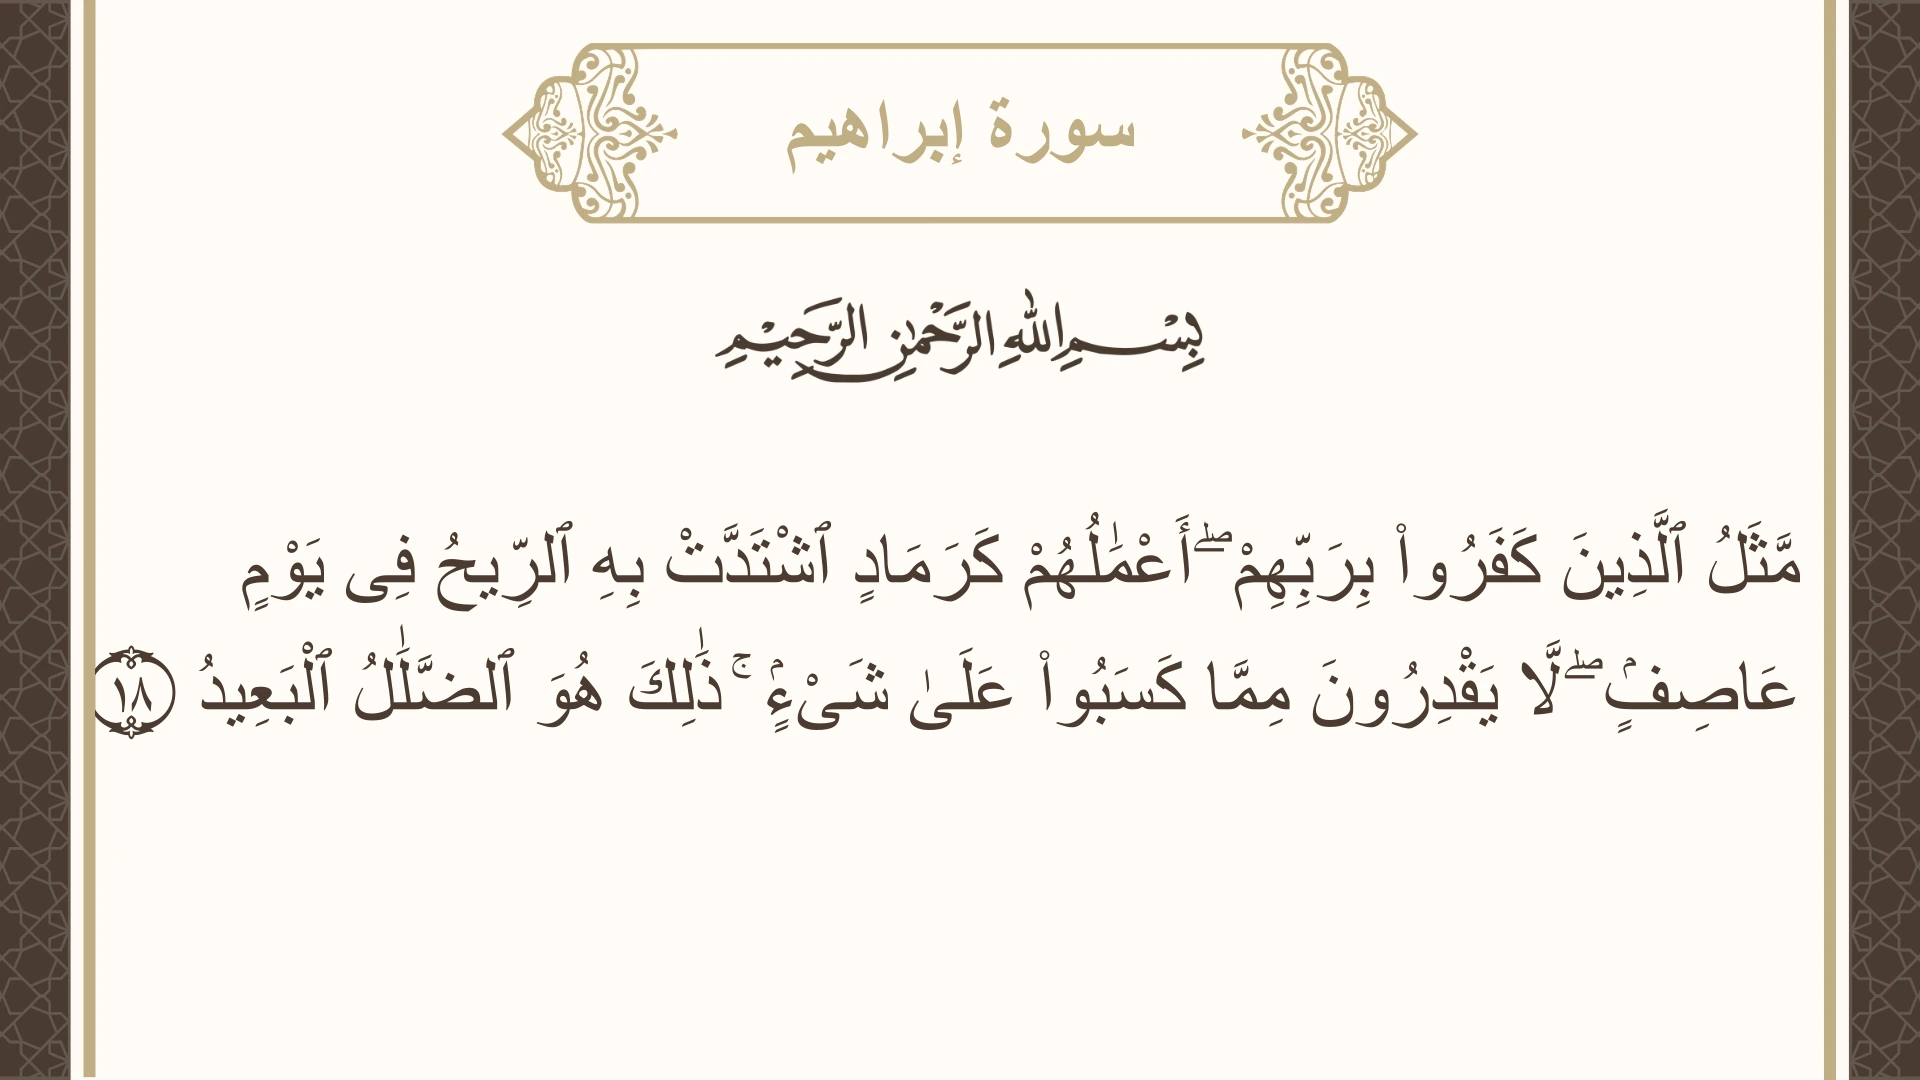 سورة إبراهيم
بِسْمِ اللهِ الرَّحْمٰنِ الرَّحِيْمِ
مَّثَلُ ٱلَّذِينَ كَفَرُوا۟ بِرَبِّهِمْ ۖ أَعْمَٰلُهُمْ كَرَمَادٍ ٱشْتَدَّتْ بِهِ ٱلرِّيحُ فِى يَوْمٍ
عَاصِفٍۢ ۖ لَّا يَقْدِرُونَ مِمَّا كَسَبُوا۟ عَلَىٰ شَىْءٍۢ ۚ ذَٰلِكَ هُوَ ٱلضَّلَٰلُ ٱلْبَعِيدُ ١٨